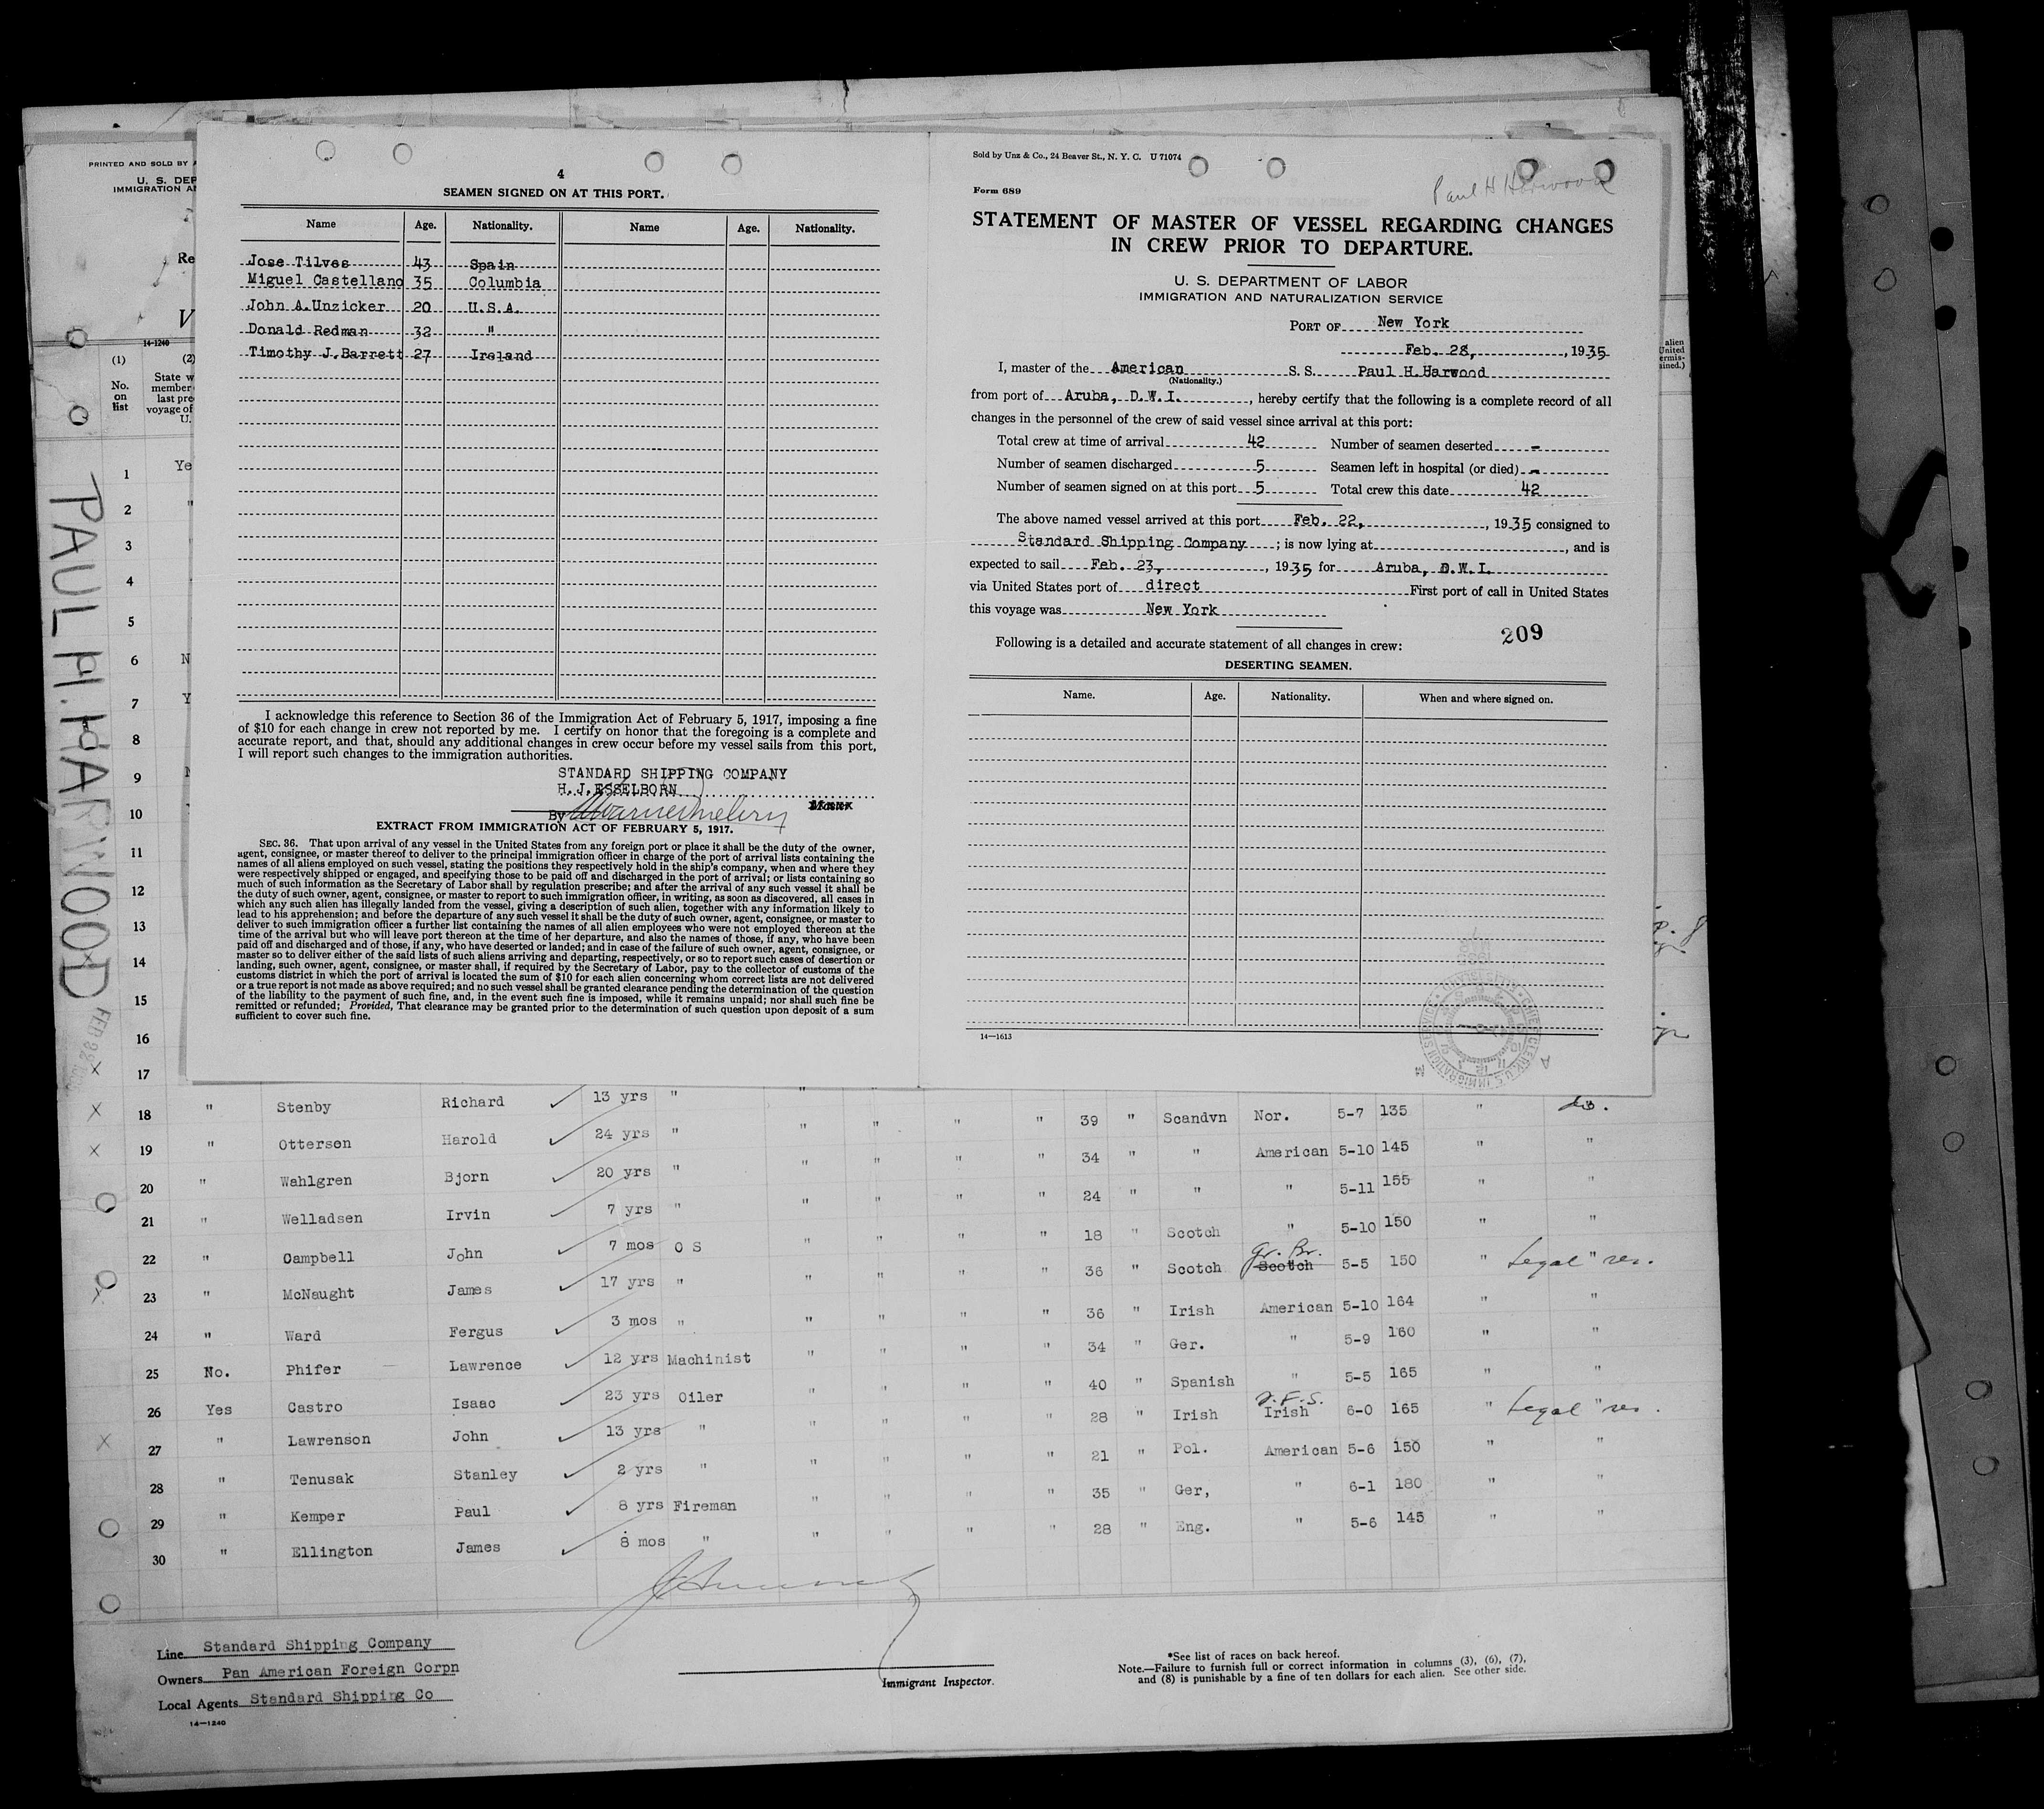 PRINTED AND SOLD BY
U. S. DEP
IMMIGRATION A
Re
V
14-1240
(1) (2)
No. on list
State w
member
last pre
voyage of
U.
alien
United
ermis-
ained.)
PAUL H. HARWOOD
FEB 22
1 Ye
2 "
3
4
5
6 N
7 Y
8
9
10
11
12
13
14
15
16
17
4
SEAMEN SIGNED ON AT THIS PORT.
Name Age. Nationality. Name Age. Nationality.
Jose Tilves 43 Spain
Miguel Castellano 35 Columbia
John A.Unzicker 20 U.S.A.
Donald Redman 32 "
Timothy J.Barrett 27 Ireland
I acknowledge this reference to Section 36 of the Immigration Act of February 5, 1917, imposing a fine
of $10 for each change in crew not reported by me. I certify on honor that the foregoing is a complete and
accurate report, and that, should any additional changes in crew occur before my vessel sails from this port,
I will report such changes to the immigration authorities.
STANDARD SHIPPING COMPANY
H.J.ESSELBORN
By
EXTRACT FROM IMMIGRATION ACT OF FEBRUARY 5, 1917.
SEC. 36. That upon arrival of any vessel in the United States from any foreign port or place it shall be the duty of the owner,
agent, consignee, or master thereof to deliver to the principal immigration officer in charge of the port of arrival lists containing the
names of all aliens employed on such vessel, stating the positions they respectively hold in the ship's company, when and where they
were respectively shipped or engaged, and specifying those to be paid off and discharged in the port of arrival; or lists containing so
much of such information as the Secretary of Labor shall by regulation prescribe; and after the arrival of any such vessel it shall be
the duty of such owner, agent, consignee, or master to report to such immigration officer, in writing, as soon as discovered, all cases in
which any such alien has illegally landed from the vessel, giving a description of such alien, together with any information likely to
lead to his apprehension; and before the departure of any such vessel it shall be the duty of such owner, agent, consignee, or master to
deliver to such immigration officer a further list containing the names of all alien employees who were not employed thereon at the
time of the arrival but who will leave port thereon at the time of her departure, and also the names of those, if any, who have been
paid off and discharged and of those, if any, who have deserted or landed; and in case of the failure of such owner, agent, consignee, or
master so to deliver either of the said lists of such aliens arriving and departing, respectively, or so to report such cases of desertion or
landing, such owner, agent, consignee, or master shall, if required by the Secretary of Labor, pay to the collector of customs of the
customs district in which the port of arrival is located the sum of $10 for each alien concerning whom correct lists are not delivered
or a true report is not made as above required; and no such vessel shall be granted clearance pending the determination of the question
of the liability to the payment of such fine, and, in the event such fine is imposed, while it remains unpaid; nor shall such fine be
remitted or refunded; Provided, That clearance may be granted prior to the determination of such question upon deposit of a sum
sufficient to cover such fine.
Sold by Unz & Co., 24 Beaver St., N. Y. C. U 71074
Form 689
Paul H Harwood
STATEMENT OF MASTER OF VESSEL REGARDING CHANGES
IN CREW PRIOR TO DEPARTURE.
U. S. DEPARTMENT OF LABOR
IMMIGRATION AND NATURALIZATION SERVICE
PORT OF New York
Feb. 28, , 1935
I, master of the American S. S. Paul H.Harwood
(Nationality.)
from port of Aruba, D.W.I. , hereby certify that the following is a complete record of all
changes in the personnel of the crew of said vessel since arrival at this port:
Total crew at time of arrival 42 Number of seamen deserted -
Number of seamen discharged 5 Seamen left in hospital (or died) -
Number of seamen signed on at this port 5 Total crew this date 42
The above named vessel arrived at this port Feb. 22, , 1935 consigned to
Standard Shipping Company ; is now lying at , and is
expected to sail Feb. 23, , 1935 for Aruba, D.W.I.
via United States port of direct First port of call in United States
this voyage was New York
Following is a detailed and accurate statement of all changes in crew:
209
DESERTING SEAMEN.
Name. Age. Nationality. When and where signed on.
14—1613
18 " Stenby Richard 13 yrs " " " " " 39 " Scandvn Nor. 5-7 135 " do.
19 " Otterson Harold 24 yrs " " " " " 34 " " American 5-10 145 " "
20 " Wahlgren Bjorn 20 yrs " " " " " 24 " " " 5-11 155 " "
21 " Welladsen Irvin 7 yrs " " " " " 18 " Scotch " 5-10 150 " "
22 " Campbell John 7 mos O S " " " " 36 " Scotch Scotch Gr. Br. 5-5 150 " Legal " res.
23 " McNaught James 17 yrs " " " " " 36 " Irish American 5-10 164 " "
24 " Ward Fergus 3 mos " " " " " 34 " Ger. " 5-9 160 " "
25 No. Phifer Lawrence 12 yrs Machinist " " " " 40 " Spanish " 5-5 165 " "
26 Yes Castro Isaac 23 yrs Oiler " " " " 28 " Irish Irish I.F.S. 6-0 165 " Legal " res.
27 " Lawrenson John 13 yrs " " " " " 21 " Pol. American 5-6 150 " "
28 " Tenusak Stanley 2 yrs " " " " " 35 " Ger, " 6-1 180 " "
29 " Kemper Paul 8 yrs Fireman " " " " 28 " Eng. " 5-6 145 " "
30 " Ellington James 8 mos "
Line Standard Shipping Company
Owners Pan American Foreign Corpn
Local Agents Standard Shipping Co
14—1240
Immigrant Inspector.
*See list of races on back hereof.
Note.—Failure to furnish full or correct information in columns (3), (6), (7),
and (8) is punishable by a fine of ten dollars for each alien. See other side.